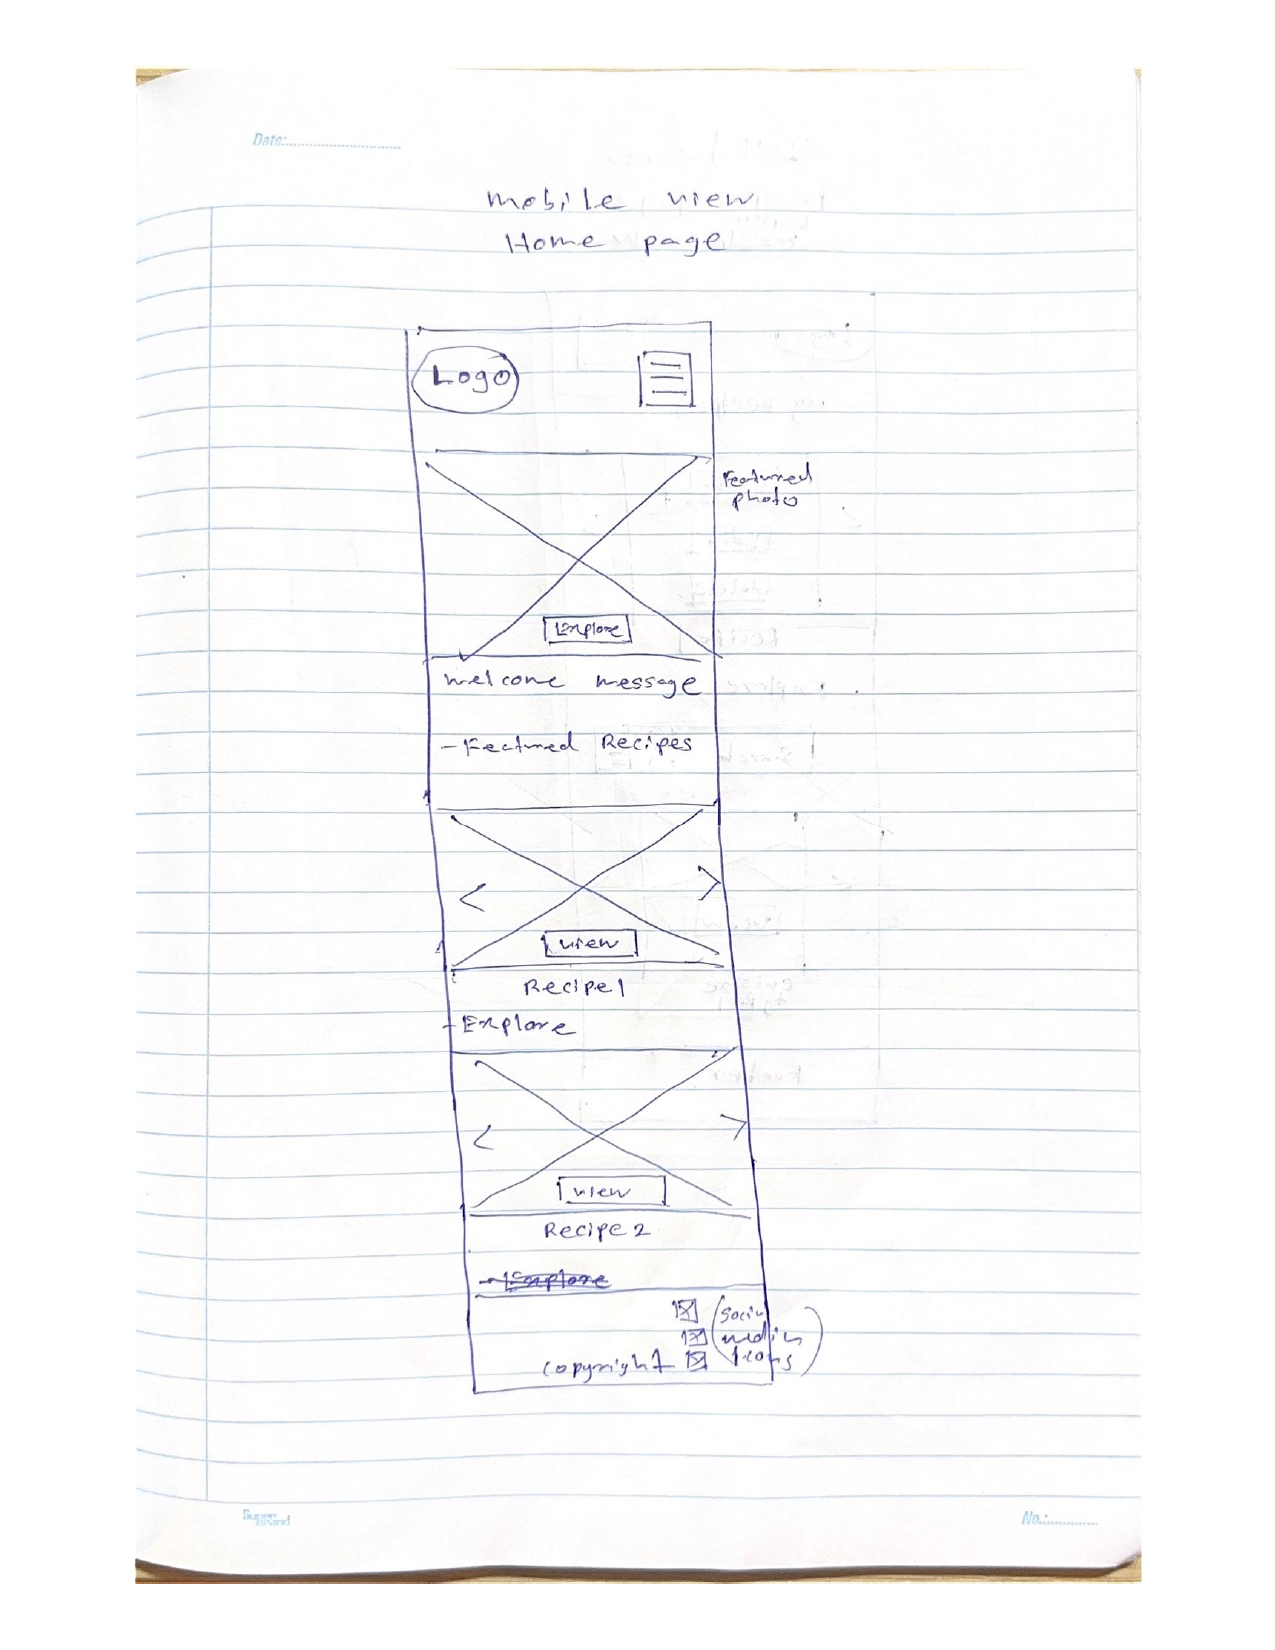 Date:
mobile view
Home page
Logo
Featured
photo
Explore
Welcome message
- Featured Recipes
< >
view
Recipe 1
- Explore
< >
view
Recipe 2
- Explore
(Social
media
Icons)
copyright
No.: